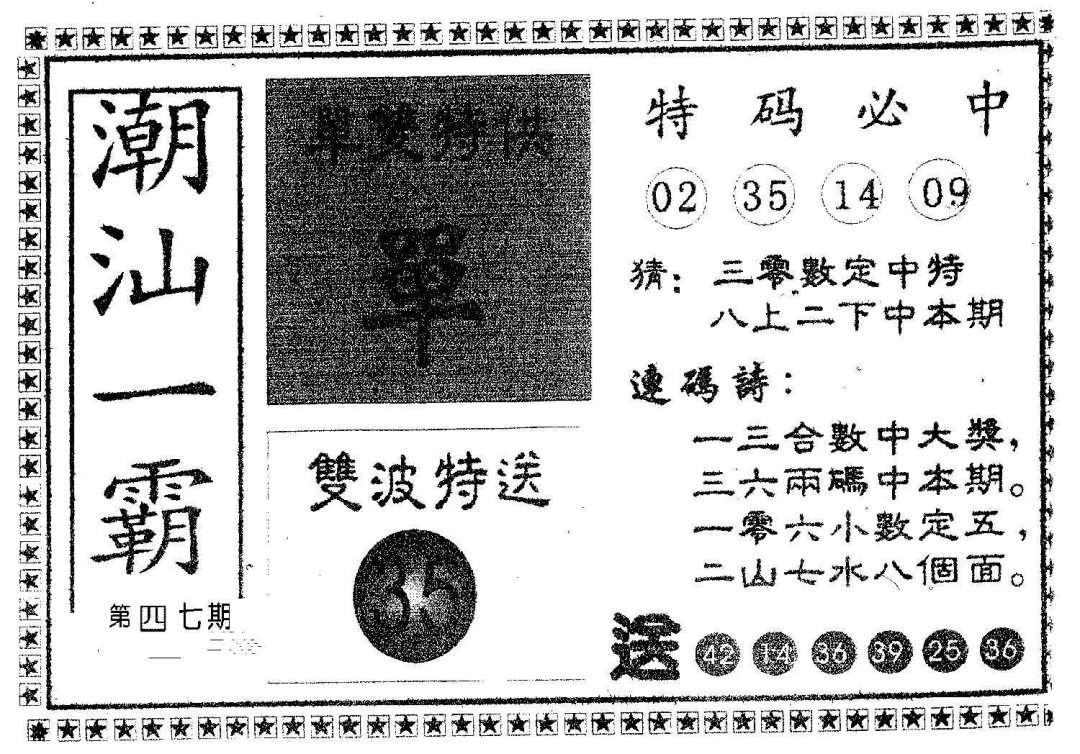 潮汕一霸
第四七期
單雙特供
單
雙波特送
35
特码必中
02 35 14 09
猜：三零數定中特
八上二下中本期
連碼詩：
一三合數中大獎，
三六兩碼中本期。
一零六小數定五，
二山七水八個面。
送 42 14 36 39 25 36